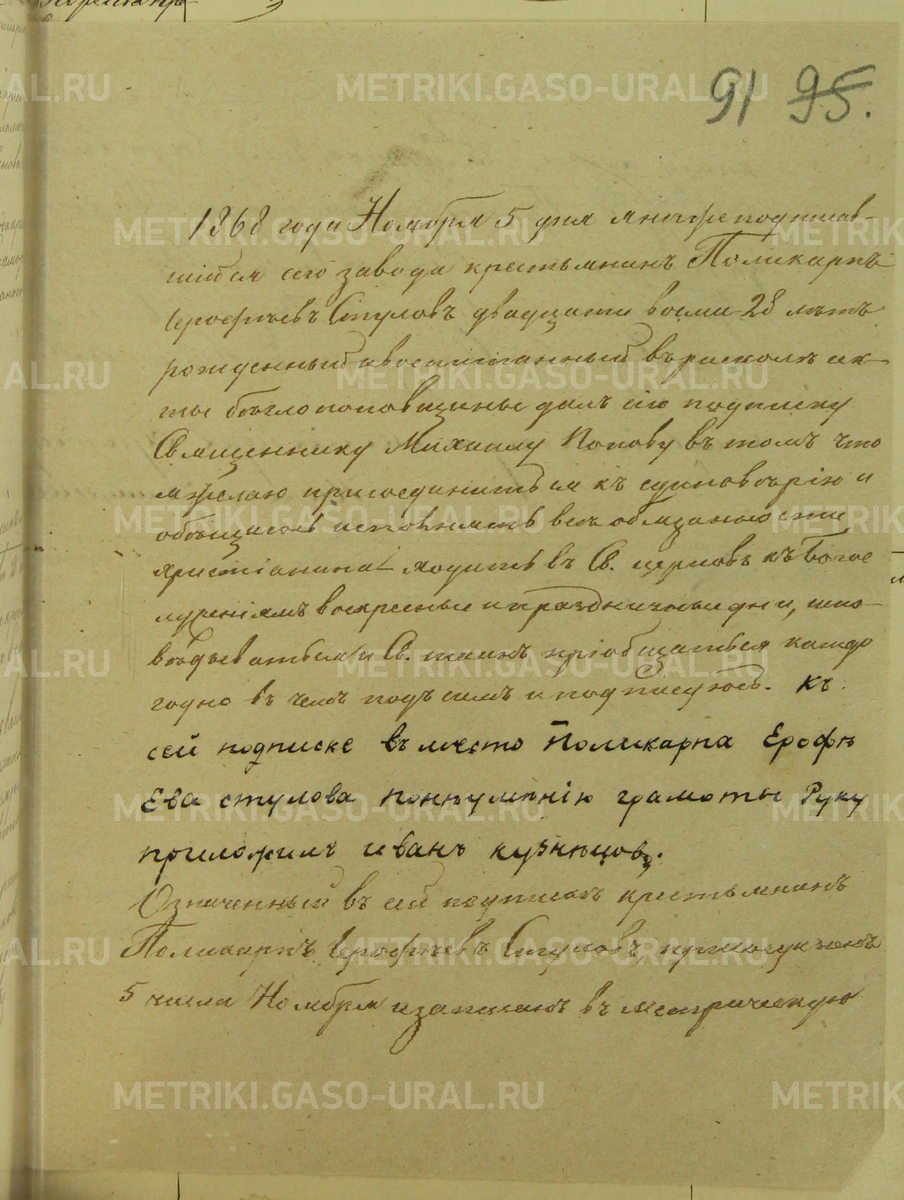 91 95.
1868 года Ноября 5 дня я нижеподписав-
шійся сего завода крестьянинъ Поликарпъ
Іерофѣевъ Стуловъ двадцати восми 28 лѣтъ
рожденный и воспитанный въ расколѣ сек-
ты бѣглопоповщинье далъ сію подписку
Священнику Михаилу Попову въ томъ что
я желаю присоединиться къ единовѣрію и
обѣщаюсь исполнять всѣ обязанности
христіанина ходить въ Св. церковь къ Богос
луженіямъ воскресные и праздничные дни, испо-
вѣдываться и Св. таинъ пріобщаться каждо
годно въ чемъ подъ симъ и подписуюсь. Къ
сей подписке вместо Поликарпа Ерофѣ
Ева стулова Понеуменію грамоты Руку
приложилъ иванъ кузнѣцовъ.
Означенный въ сей подпискѣ крестьянинъ
Поликарпъ Іерофѣевъ Стуловъ присоединенъ
5 числа Ноября и записанъ въ метрическую
METRIKI.GASO-URAL.RU